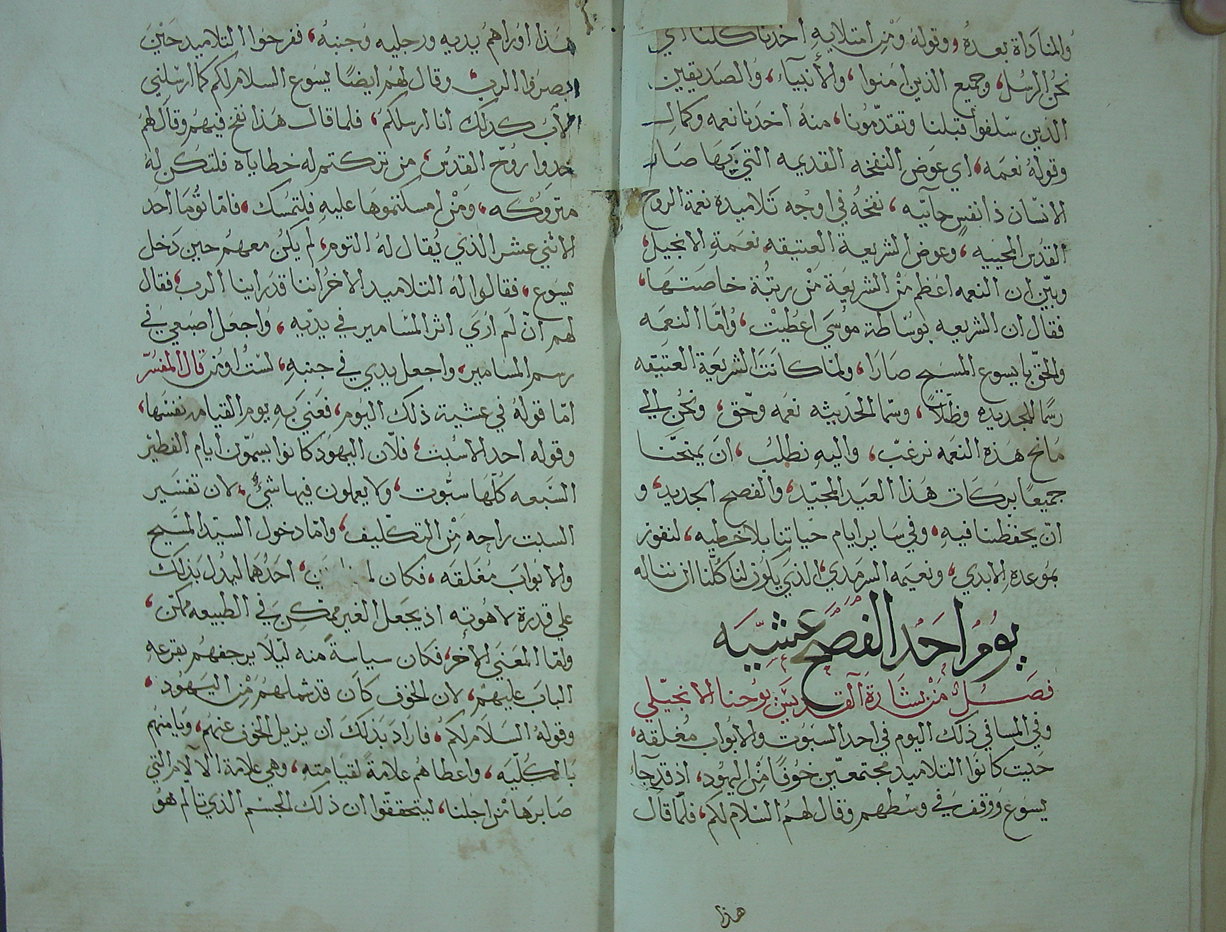 والمناداة بعده، وقوله ومن امتلايه اخدنا كلنا اي
نحن الرسل، وجميع الذين امنوا، والأنبياء، والصديقين
الدين سلفوا قبلنا وتقدمونا، منه اخدنا نعمه وكمال
وقوله نعمه، اي عوض النفخه القديمه التي بها صار
الانسان ذا نفس حاتيه، نفخه في اوجه تلاميده نعمة الروح
القدس المحييه، وعوض الشريعة العتيقه نعمة الانجيل،
وبين ان النعمه اعظم من الشريعة من رتبة خاصتها،
فقال ان الشريعه بوساطة موسى اعطيت، واما النعمه
والحق بايسوع المسيح صارا، ولما كانت الشريعة العتيقه
رسما للجديده وظلا، وسما الحديثه نعمه وحق، ونحن الي
مانح هذه النعمه نرغب، واليه نطلب، ان يمنحنا
جميعا بركات هذا العيد المجيد، والفصح الجديد، و
ان يحفظنا فيه، وفي ساير ايام حياتنا بلا خطيه، لنفوز
بموعده الابدي، ونعيمه السرمدي، الذي يكون لنا كلنا ان نناله
يوم احد الفصح عشيه
فصل من بشارة القديس يوحنا الانجيلي
وفي المسا في ذلك اليوم في احد السبوت والابواب مغلقه،
حيت كانوا التلاميد مجتمعين خوفا من اليهود، اد قد جاء
يسوع ووقف في وسطهم وقال لهم السلام لكم، فلما قال
هذا
هدا اوراهم يديه ورجليه وجنبه، ففرحوا التلاميد حين
ابصروا الرب، وقال لهم ايضا يسوع السلام لكم كما ارسلني
الاب كدلك انا ارسلكم، فلما قال هذا نفخ فيهم وقال لهم
خدوا روح القدس، من تركتم له خطاياه فلتكن له
متروكه، ومن امسكتموها عليه فلتمسك، فاما توما احد
الاثني عشر الذي يقال له التوم، لم يكن معهم حين دخل
يسوع، فقالوا له التلاميد الاخر اننا قد راينا الرب، فقال
لهم ان لم اري اثر المسامير في يديه، واجعل اصبعي في
رسم المسامير، واجعل يدي في جنبه، لست اومن قال المفسر
اما قوله في عشية ذلك اليوم، فعني به يوم القيامه نفسها،
وقوله احد الاسبت، فلان اليهود كانوا يسموت ايام الفطير
السبعه كلها سبوت، ولا يعملون فيها شي، لان تفسير
السبت راحه من التكليف، واما دخول السيد المسيح
والابواب مغلقه، فكان احدهما ليدل بدلك
علي قدرة لاهوته اد يجعل الغير ممكن في الطبيعه ممكن،
واما المعني الاخر، فكان سياسة منه ليلا يرجفهم بقرعه
الباب عليهم، لان الخوف كان قد شملهم من اليهود،
وقوله السلام لكم، فاراد بدلك ان يزيل الخوف عنهم، ويامنهم
بالكليه، واعطاهم علامة لقيامته، وهي علامة الالام التي
صابرها من اجلنا، ليتحققوا ان ذلك الجسم الذي تالم هو